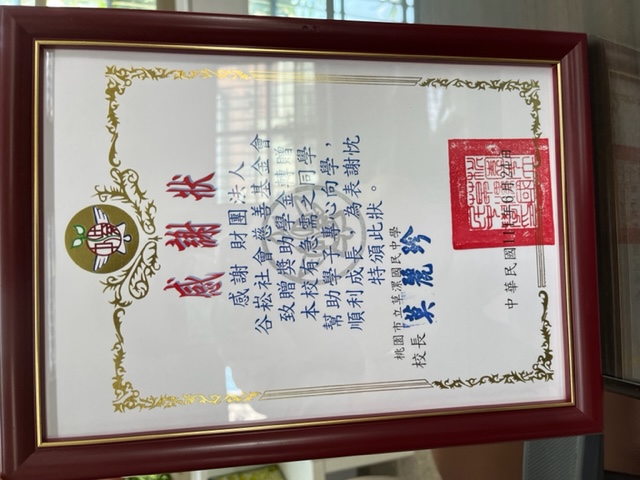 感謝狀
感謝 財團法人
谷崧社會慈善基金會
致贈獎助學金
本校有急需之 同學
幫助學子專心向學，
順利成長，為表謝忱
特頒此狀。
桃園市立草漯國民中學
校長 莫麗珍
中華民國